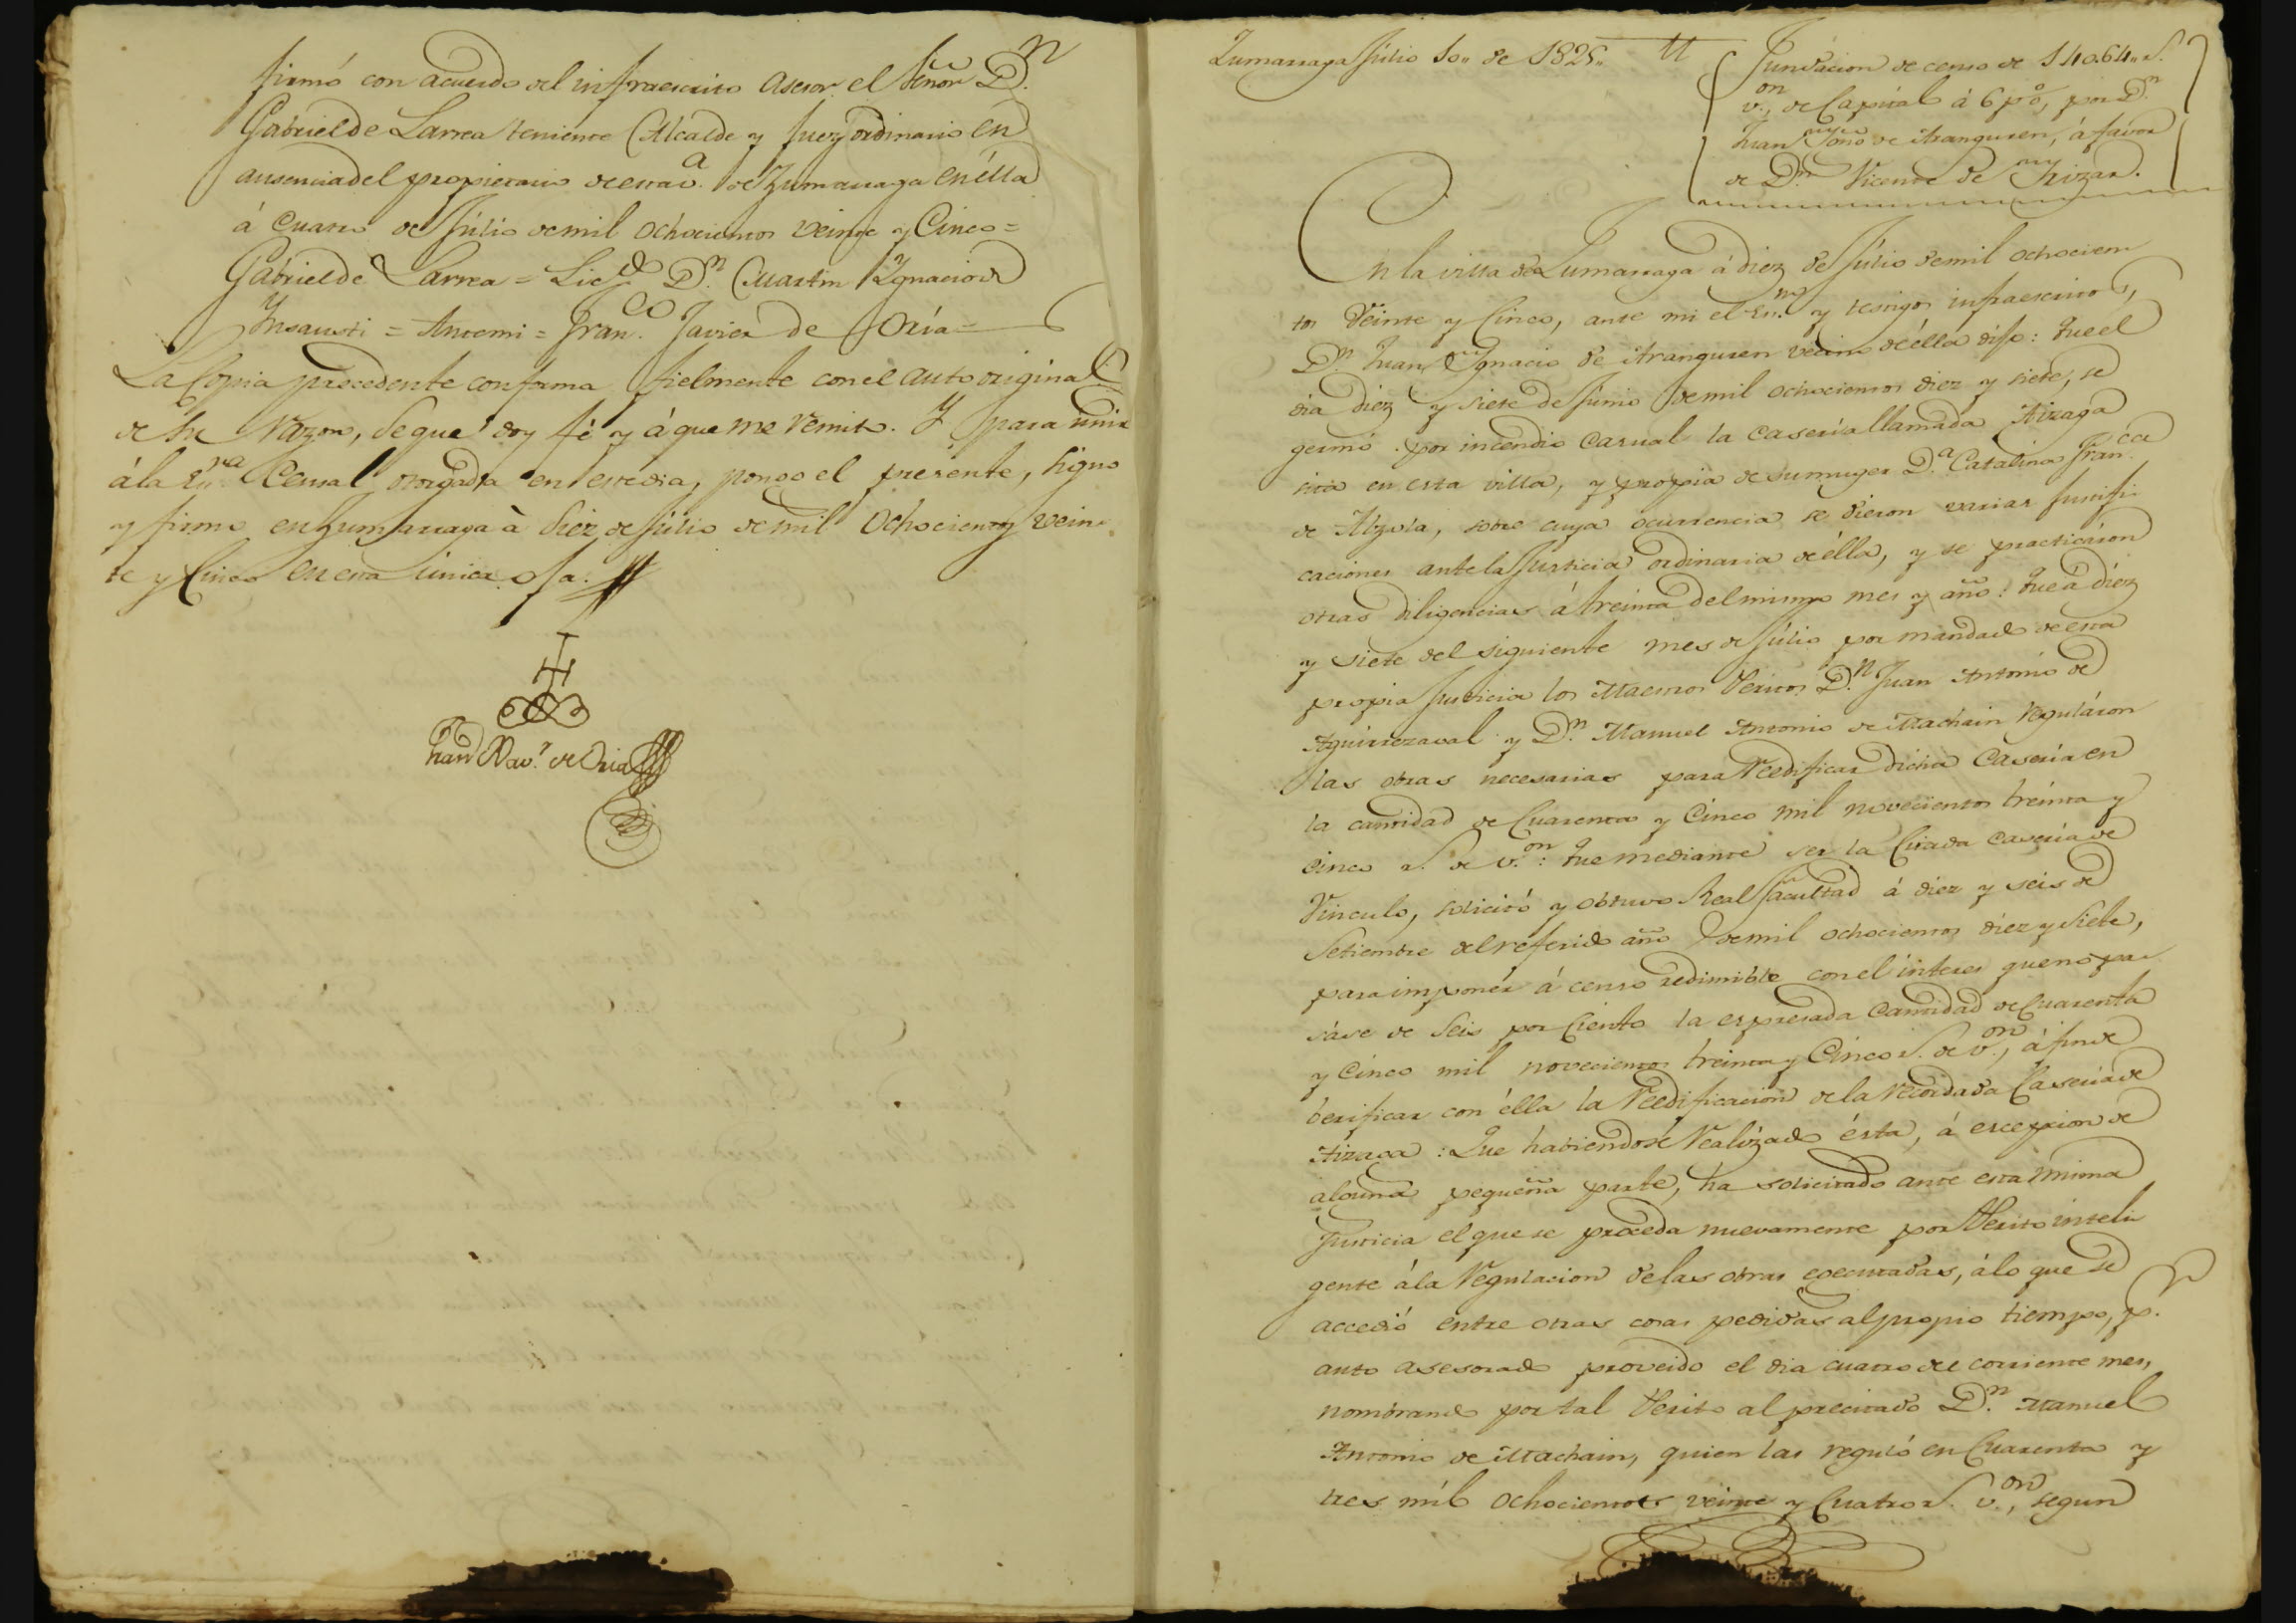 firmó con acuerdo del infraescrito Asesor el Señor D.n
Gabriel de Larrea teniente Alcalde y Juez ordinario en
ausencia del propietario de esta v.a de Zumarraga en élla
á cuatro de Júlio de mil ochocientos veinte y Cinco =
Gabriel de Larrea = Lic.do D.n Martin Ygnacio de
Ynsausti = Antemi = Fran.co Javier de Oria =
La Copia precedente conforma fielmente con el auto original
de su razon, de que doy fé y á que me remito. Y para unir
á la Es.ra Censal otorgada en este dia, pongo el presente, signo
y firmo en Zumarraga à Diez de júlio de mil Ochocientos vein-
te y Cinco en esta única oja.
Fran.co Xav.r de Oria
Zumarraga Júlio 10,, de 1825,,
Fundacion de censo de 14064,, r.s
v.on, de Capital á 6 p%, por D.n
Juan Ygno de Aranguren, á favor
de D.n Vicente de Yrizar.
En la villa de Zumarraga á diez de Júlio de mil ochocien-
tos Veinte y Cinco, ante mi el Esno y testigos infraescritos,
D.n Juan Ygnacio de Aranguren vecino de élla dijo: Que el
dia diez y siete de Junio de mil ochocientos diez y siete, se
quemó por incendio casual la casería llamada Aizaga
sita en esta villa, y propia de su muger D.a Catalina Fran.ca
de Alzola, sobre cuya ocurrencia se dieron varias justifi-
caciones ante la Justicia ordinaria de élla, y se practicáron
otras diligencias á treinta del mismo mes y año: Que á diez
y siete del siguiente mes de Júlio por mandado de esta
propia Justicia los Maestros Peritos D.n Juan Antonio de
Aguirrezaval y D.n Manuel Antonio de Machain reguláron
las obras necesarias para reedificar dicha Casería en
la cantidad de Cuarenta y Cinco mil novecientos treinta y
cinco r.s de v.on: Que mediante ser la Citada Casería de
Vinculo, solicitó y obtuvo Real facultad á diez y seis de
Setiembre del referido año de mil ochocientos diez y Siete,
para imponér á censo redimible con el interes que no pa-
sáse de Seis por Ciento la espresada Cantidad de Cuarenta
y Cinco mil novecientos treinta y Cinco r.s de v.on, á fin de
berificar con élla la reedificacion de la recordada Casería de
Aizaga: Que habiendose realizado ésta, á escepcion de
alguna pequeña parte, ha solicitado ante esta misma
Justicia el que se proceda nuevamente por Perito inteli-
gente á la regulacion de las obras egecutadas, á lo que se
accedió entre otras cosas pedidas al propio tiempo, p.r
auto asesorado proveido el dia cuatro del corriente mes,
nombrando por tal Perito al precitado D.n Manuel
Antonio de Machain, quien las reguló en Cuarenta y
tres mil Ochocientos veinte y Cuatro r.s v.on, segun